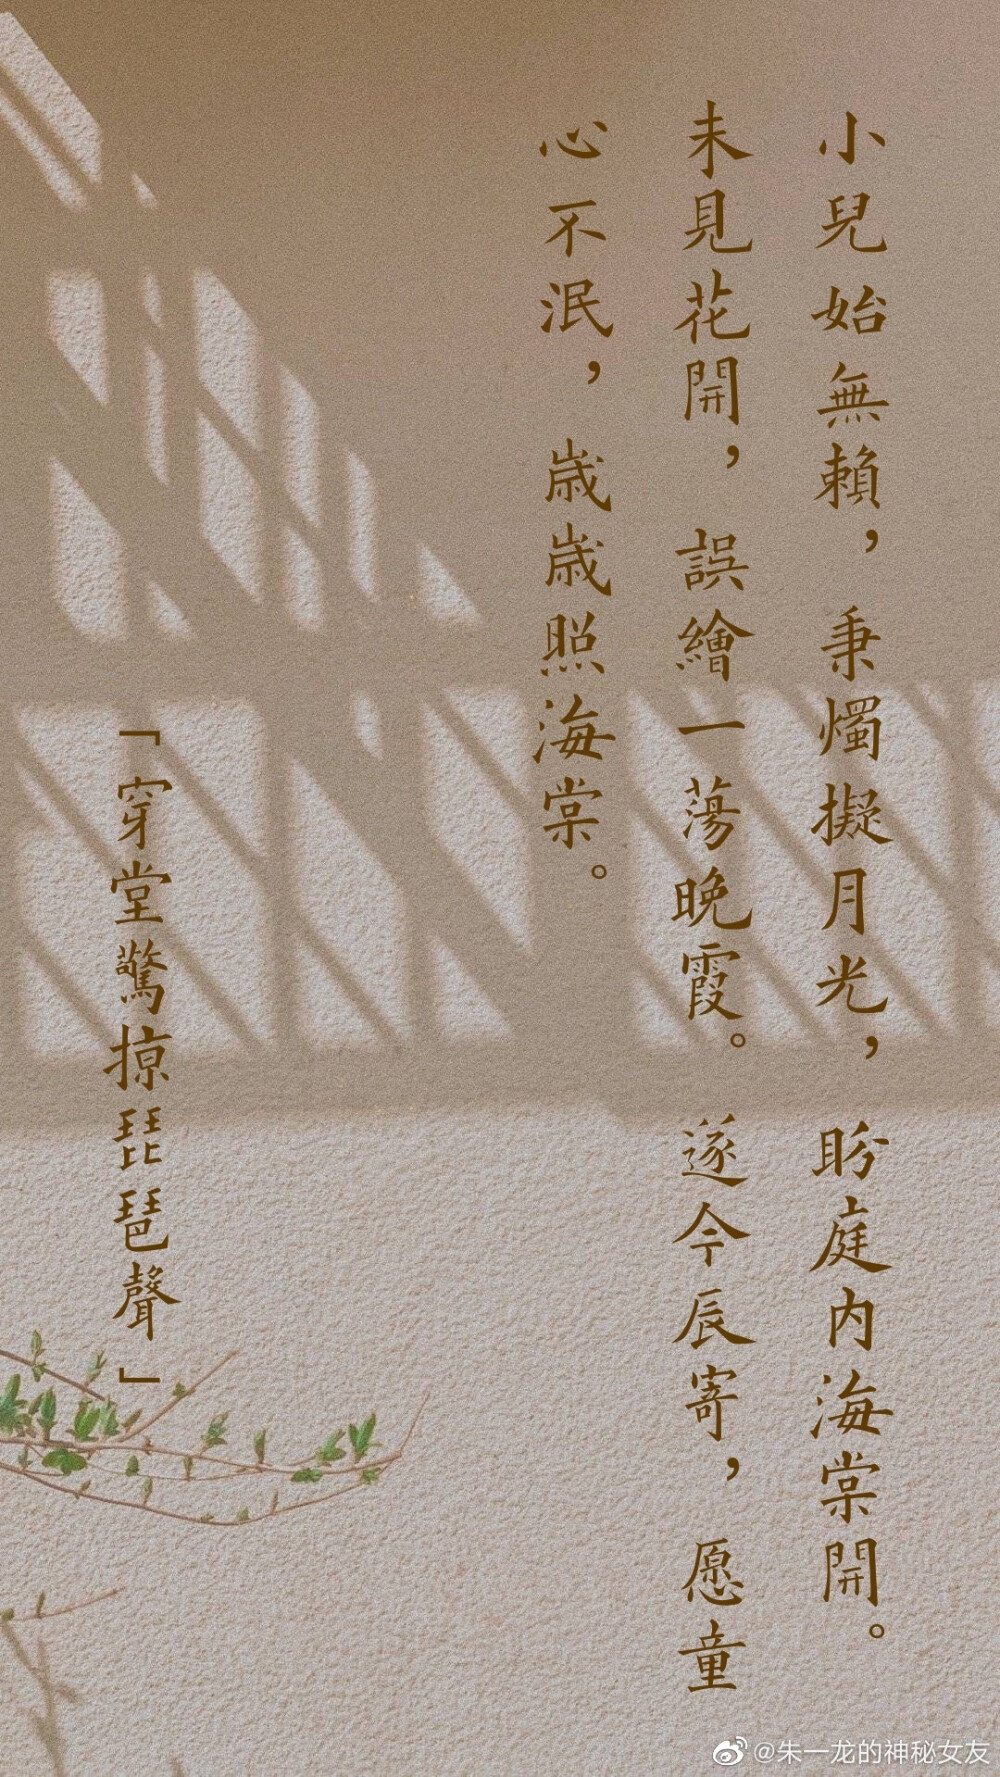 小兒始無賴，秉燭擬月光，盼庭内海棠開。
未見花開，誤繪一蕩晚霞。遂今辰寄，愿童
心不泯，歲歲照海棠。
「穿堂驚掠琵琶聲」
@朱一龙的神秘女友